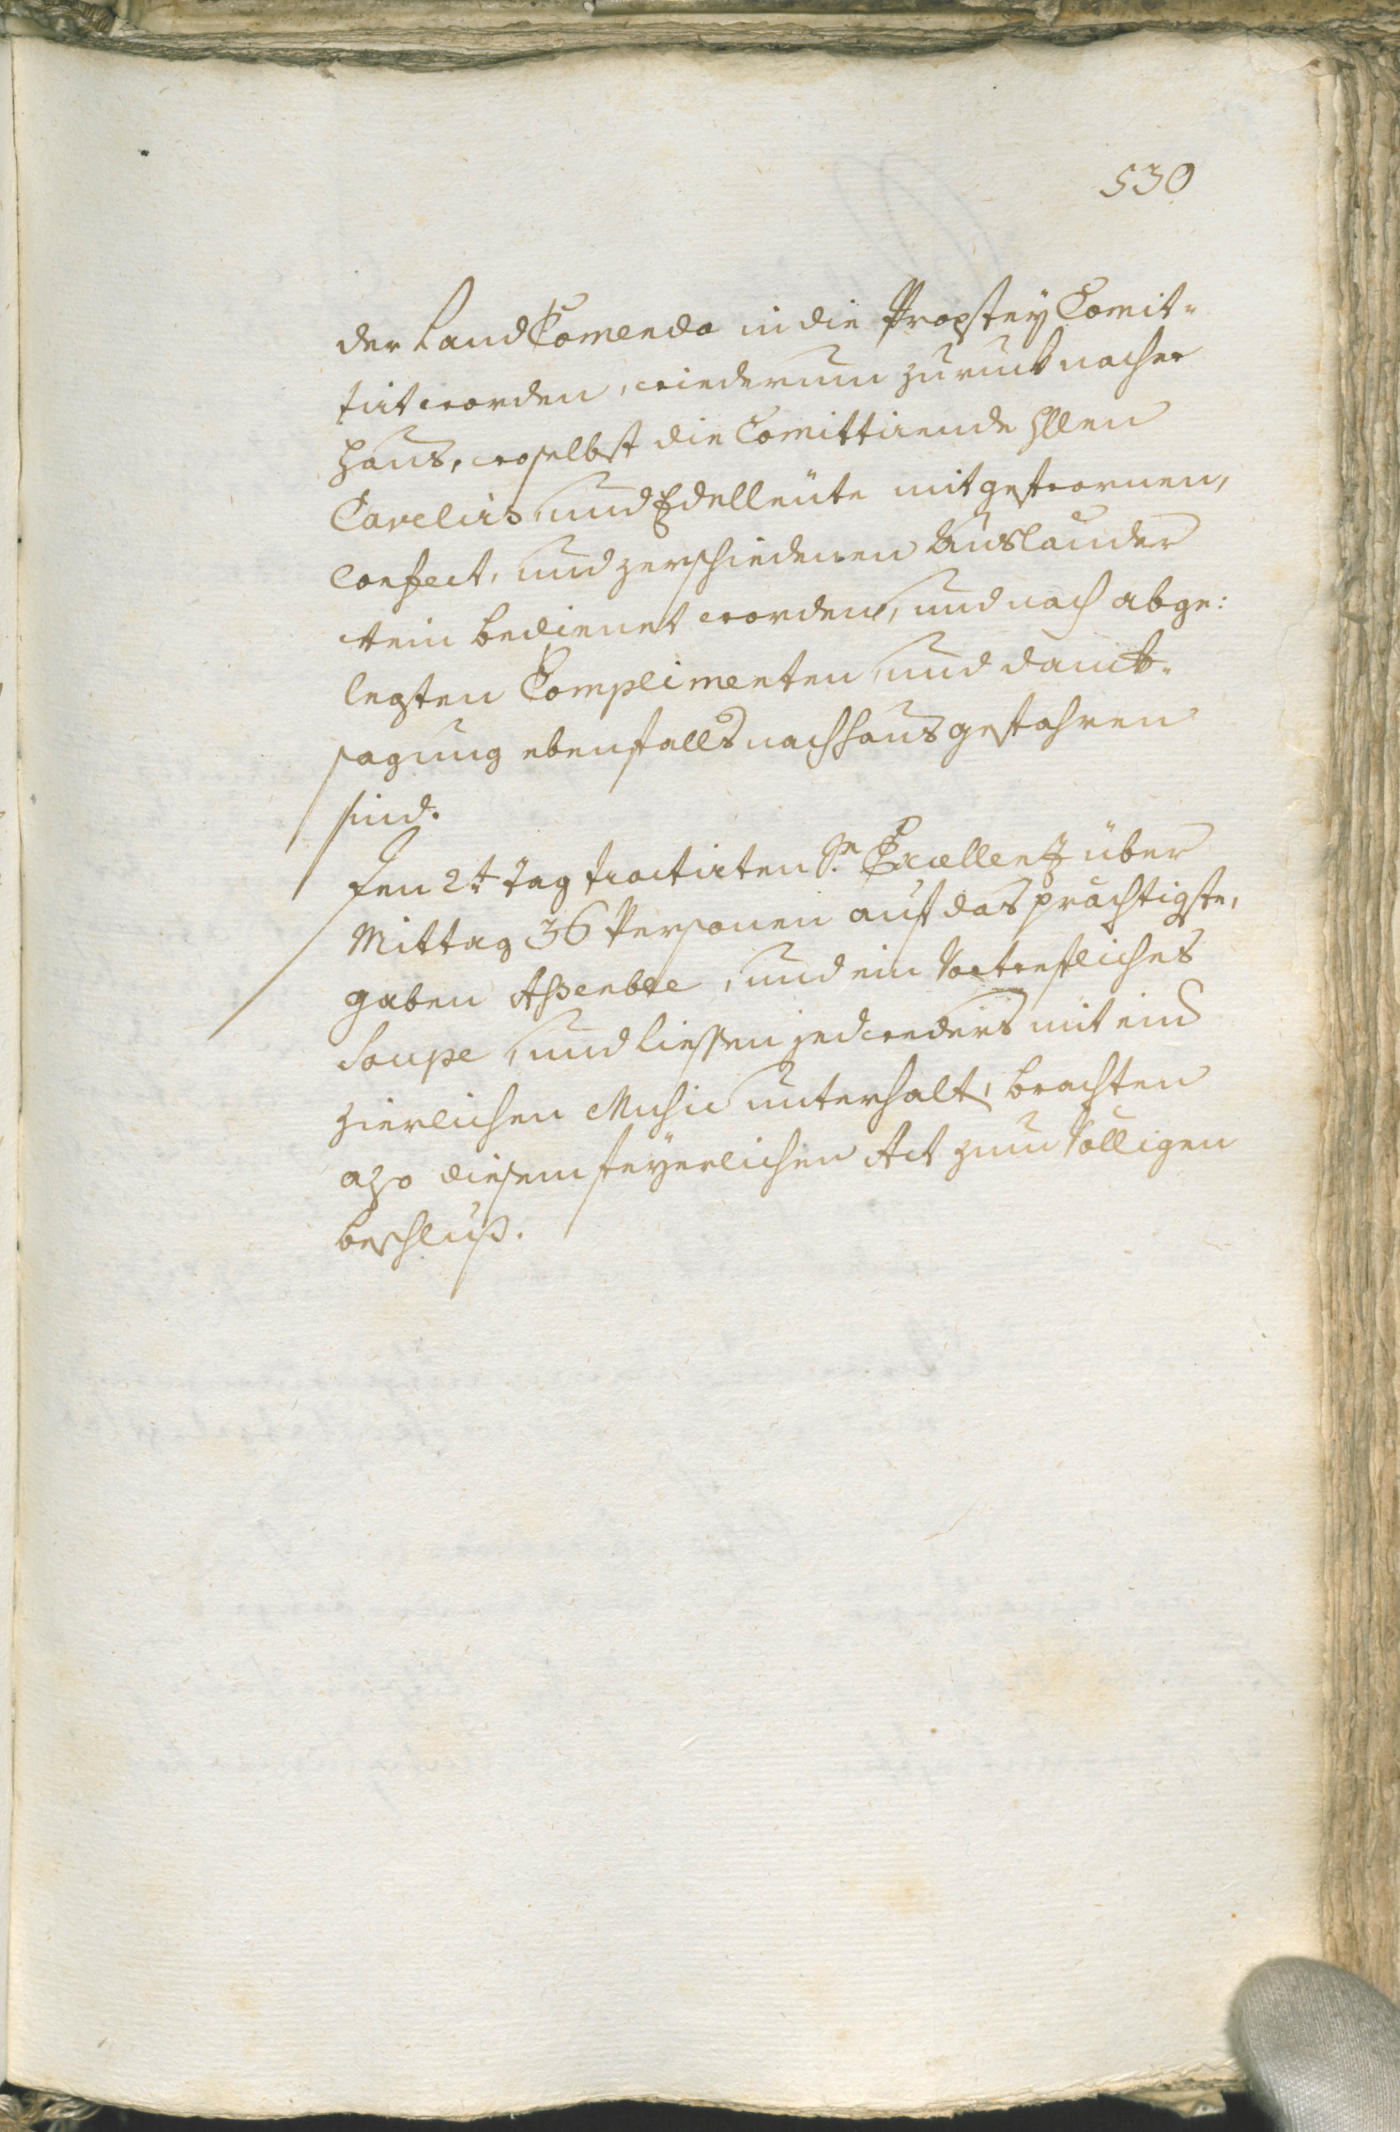 530
der Land Comenda in die Propstey Comit-
tirt worden, wiederum zuruck nacher
Haus, woselbst die Comittirende Hllen
Cavelirs und Edelleüte mit gefrornen,
Confect, und zerschiedenen Ausländer
Wein bedienet worden, und nach abge:
legten Complimenten und danck-
sagung ebenfalls nach Haus gefahren
sind.
Den 2t Tag tractirten Sr. Excellenz über
Mittag 36 Personen auf das prächtigste,
gaben Aßemblee, und ein Vortrefliches
Soupe, und liessen jedweders mit einer
zierlichen Music unterhalt, brachten
also diesem feyerlichen Act zum Völligen
beschluß.